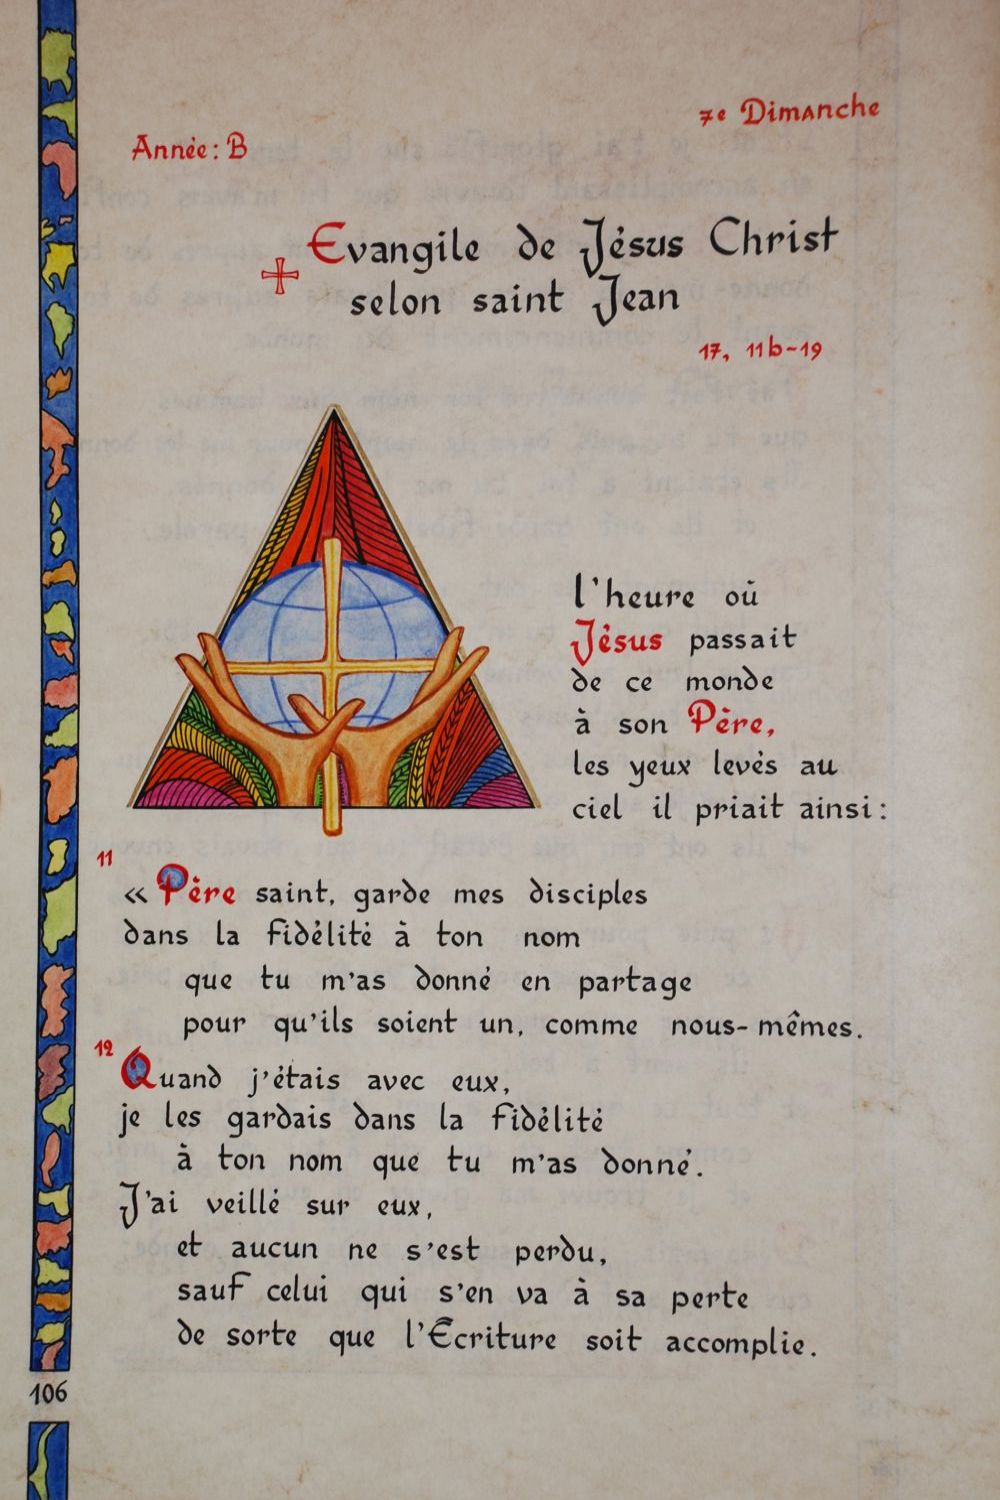 7e Dimanche
Année: B
Evangile de Jésus Christ
selon saint Jean
17, 11b-19
l'heure où
Jésus passait
de ce monde
à son Père,
les yeux levés au
ciel il priait ainsi:
11
« Père saint, garde mes disciples
dans la fidélité à ton nom
que tu m'as donné en partage
pour qu'ils soient un, comme nous-mêmes.
12
Quand j'étais avec eux,
je les gardais dans la fidélité
à ton nom que tu m'as donné.
J'ai veillé sur eux,
et aucun ne s'est perdu,
sauf celui qui s'en va à sa perte
de sorte que l'Ecriture soit accomplie.
106